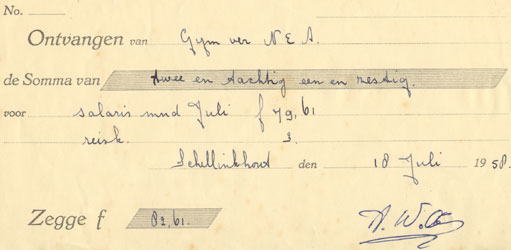 No.
Ontvangen van Gym ver N E A.
de Somma van twee en tachtig een en zestig.
voor salaris mnd Juli f 79,61
reisk. 3.
Schellinkhout den 18 Juli 1958.
Zegge f 82,61.